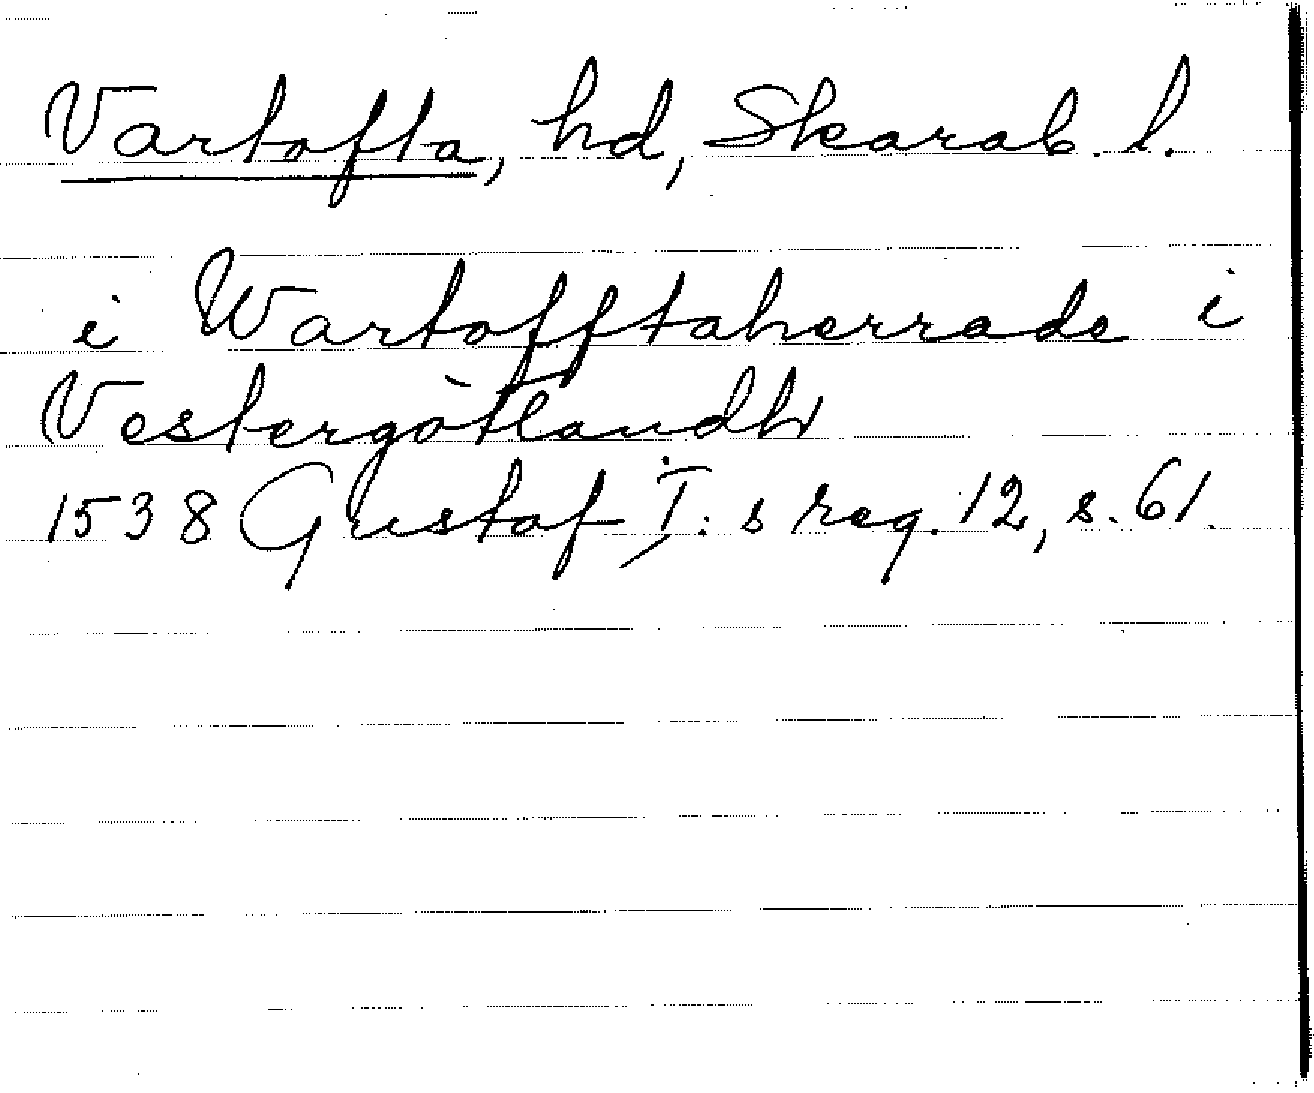 Vartofta, hd, Skarab. l.
i Wartofftaherrade i
Vestergötlandh
1538 Gustof I: s reg. 12, s. 61.